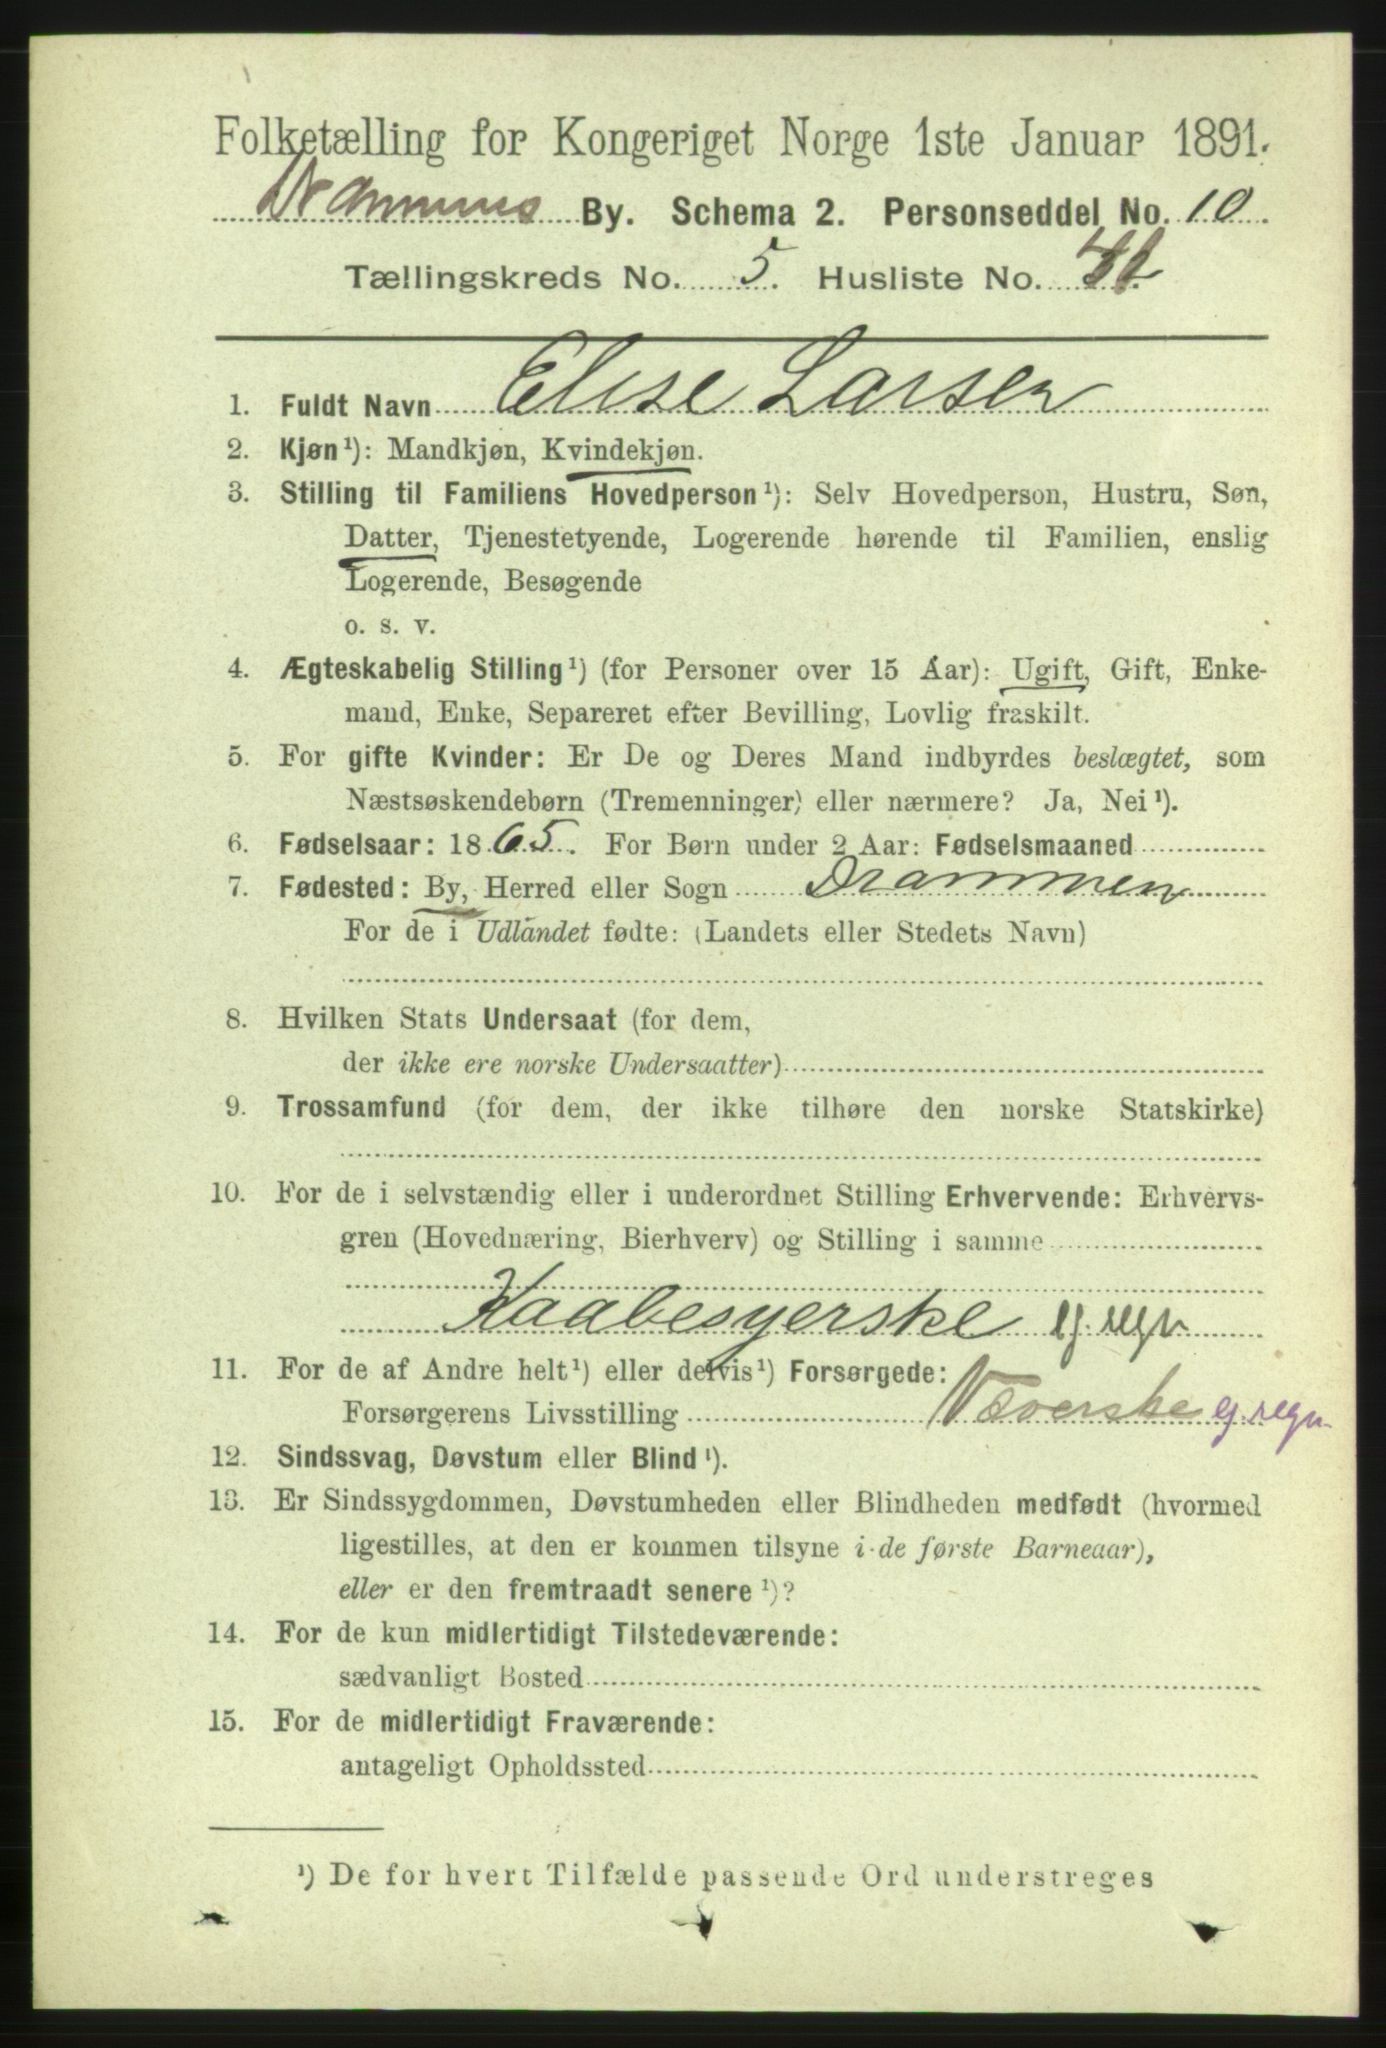 Folketælling for Kongeriget Norge 1ste Januar 1891.
Drammens By. Schema 2. Personseddel No. 10.
Tællingskreds No. 5. Husliste No.
1. Fuldt Navn Elise Larsen
2. Kjøn ¹): Mandkjøn, Kvindekjøn.
3. Stilling til Familiens Hovedperson ¹): Selv Hovedperson, Hustru, Søn,
Datter, Tjenestetyende, Logerende hørende til Familien, enslig
Logerende, Besøgende
o. s. v.
4. Ægteskabelig Stilling ¹) (for Personer over 15 Aar): Ugift, Gift, Enke-
mand, Enke, Separeret efter Bevilling, Lovlig fraskilt.
5. For gifte Kvinder: Er De og Deres Mand indbyrdes beslægtet, som
Næstsøskendebørn (Tremenninger) eller nærmere? Ja, Nei ¹).
6. Fødselsaar: 1865. For Børn under 2 Aar: Fødselsmaaned
7. Fødested: By, Herred eller Sogn Drammen
For de i Udlandet fødte: (Landets eller Stedets Navn)
8. Hvilken Stats Undersaat (for dem,
der ikke ere norske Undersaatter)
9. Trossamfund (for dem, der ikke tilhøre den norske Statskirke)
10. For de i selvstændig eller i underordnet Stilling Erhvervende: Erhvervs-
gren (Hovednæring, Bierhverv) og Stilling i samme
Kaabesyerske ej. regn
11. For de af Andre helt ¹) eller delvis ¹) Forsørgede:
Forsørgerens Livsstilling Væverske ej. regn.
12. Sindssvag, Døvstum eller Blind ¹).
13. Er Sindssygdommen, Døvstumheden eller Blindheden medfødt (hvormed
ligestilles, at den er kommen tilsyne i de første Barneaar),
eller er den fremtraadt senere ¹)?
14. For de kun midlertidigt Tilstedeværende:
sædvanligt Bosted
15. For de midlertidigt Fraværende:
antageligt Opholdssted
¹) De for hvert Tilfælde passende Ord understreges